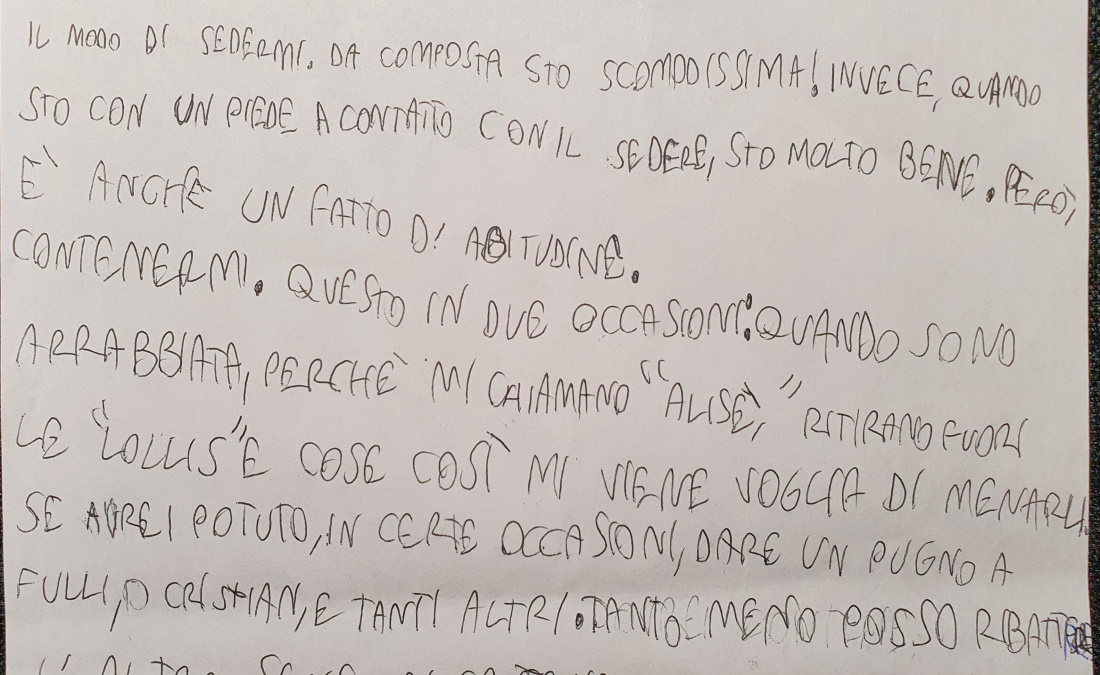 IL MODO DI SEDERMI. DA COMPOSTA STO SCOMODISSIMA! INVECE, QUANDO
STO CON UN PIEDE A CONTATTO CON IL SEDERE, STO MOLTO BENE. PERÒ,
È ANCHE UN FATTO DI ABITUDINE.
CONTENERMI. QUESTO IN DUE OCCASIONI: QUANDO SONO
ARRABBIATA, PERCHÈ MI CHIAMANO "ALISÈ," RITIRANO FUORI
LE "LOLLIS" E COSE COSÌ MI VIENE VOGLIA DI MENARLI.
SE AVREI POTUTO, IN CERTE OCCASIONI, DARE UN PUGNO A
FULLI, O CRISTIAN, E TANTI ALTRI. TANTOMENO POSSO RIBATTERE